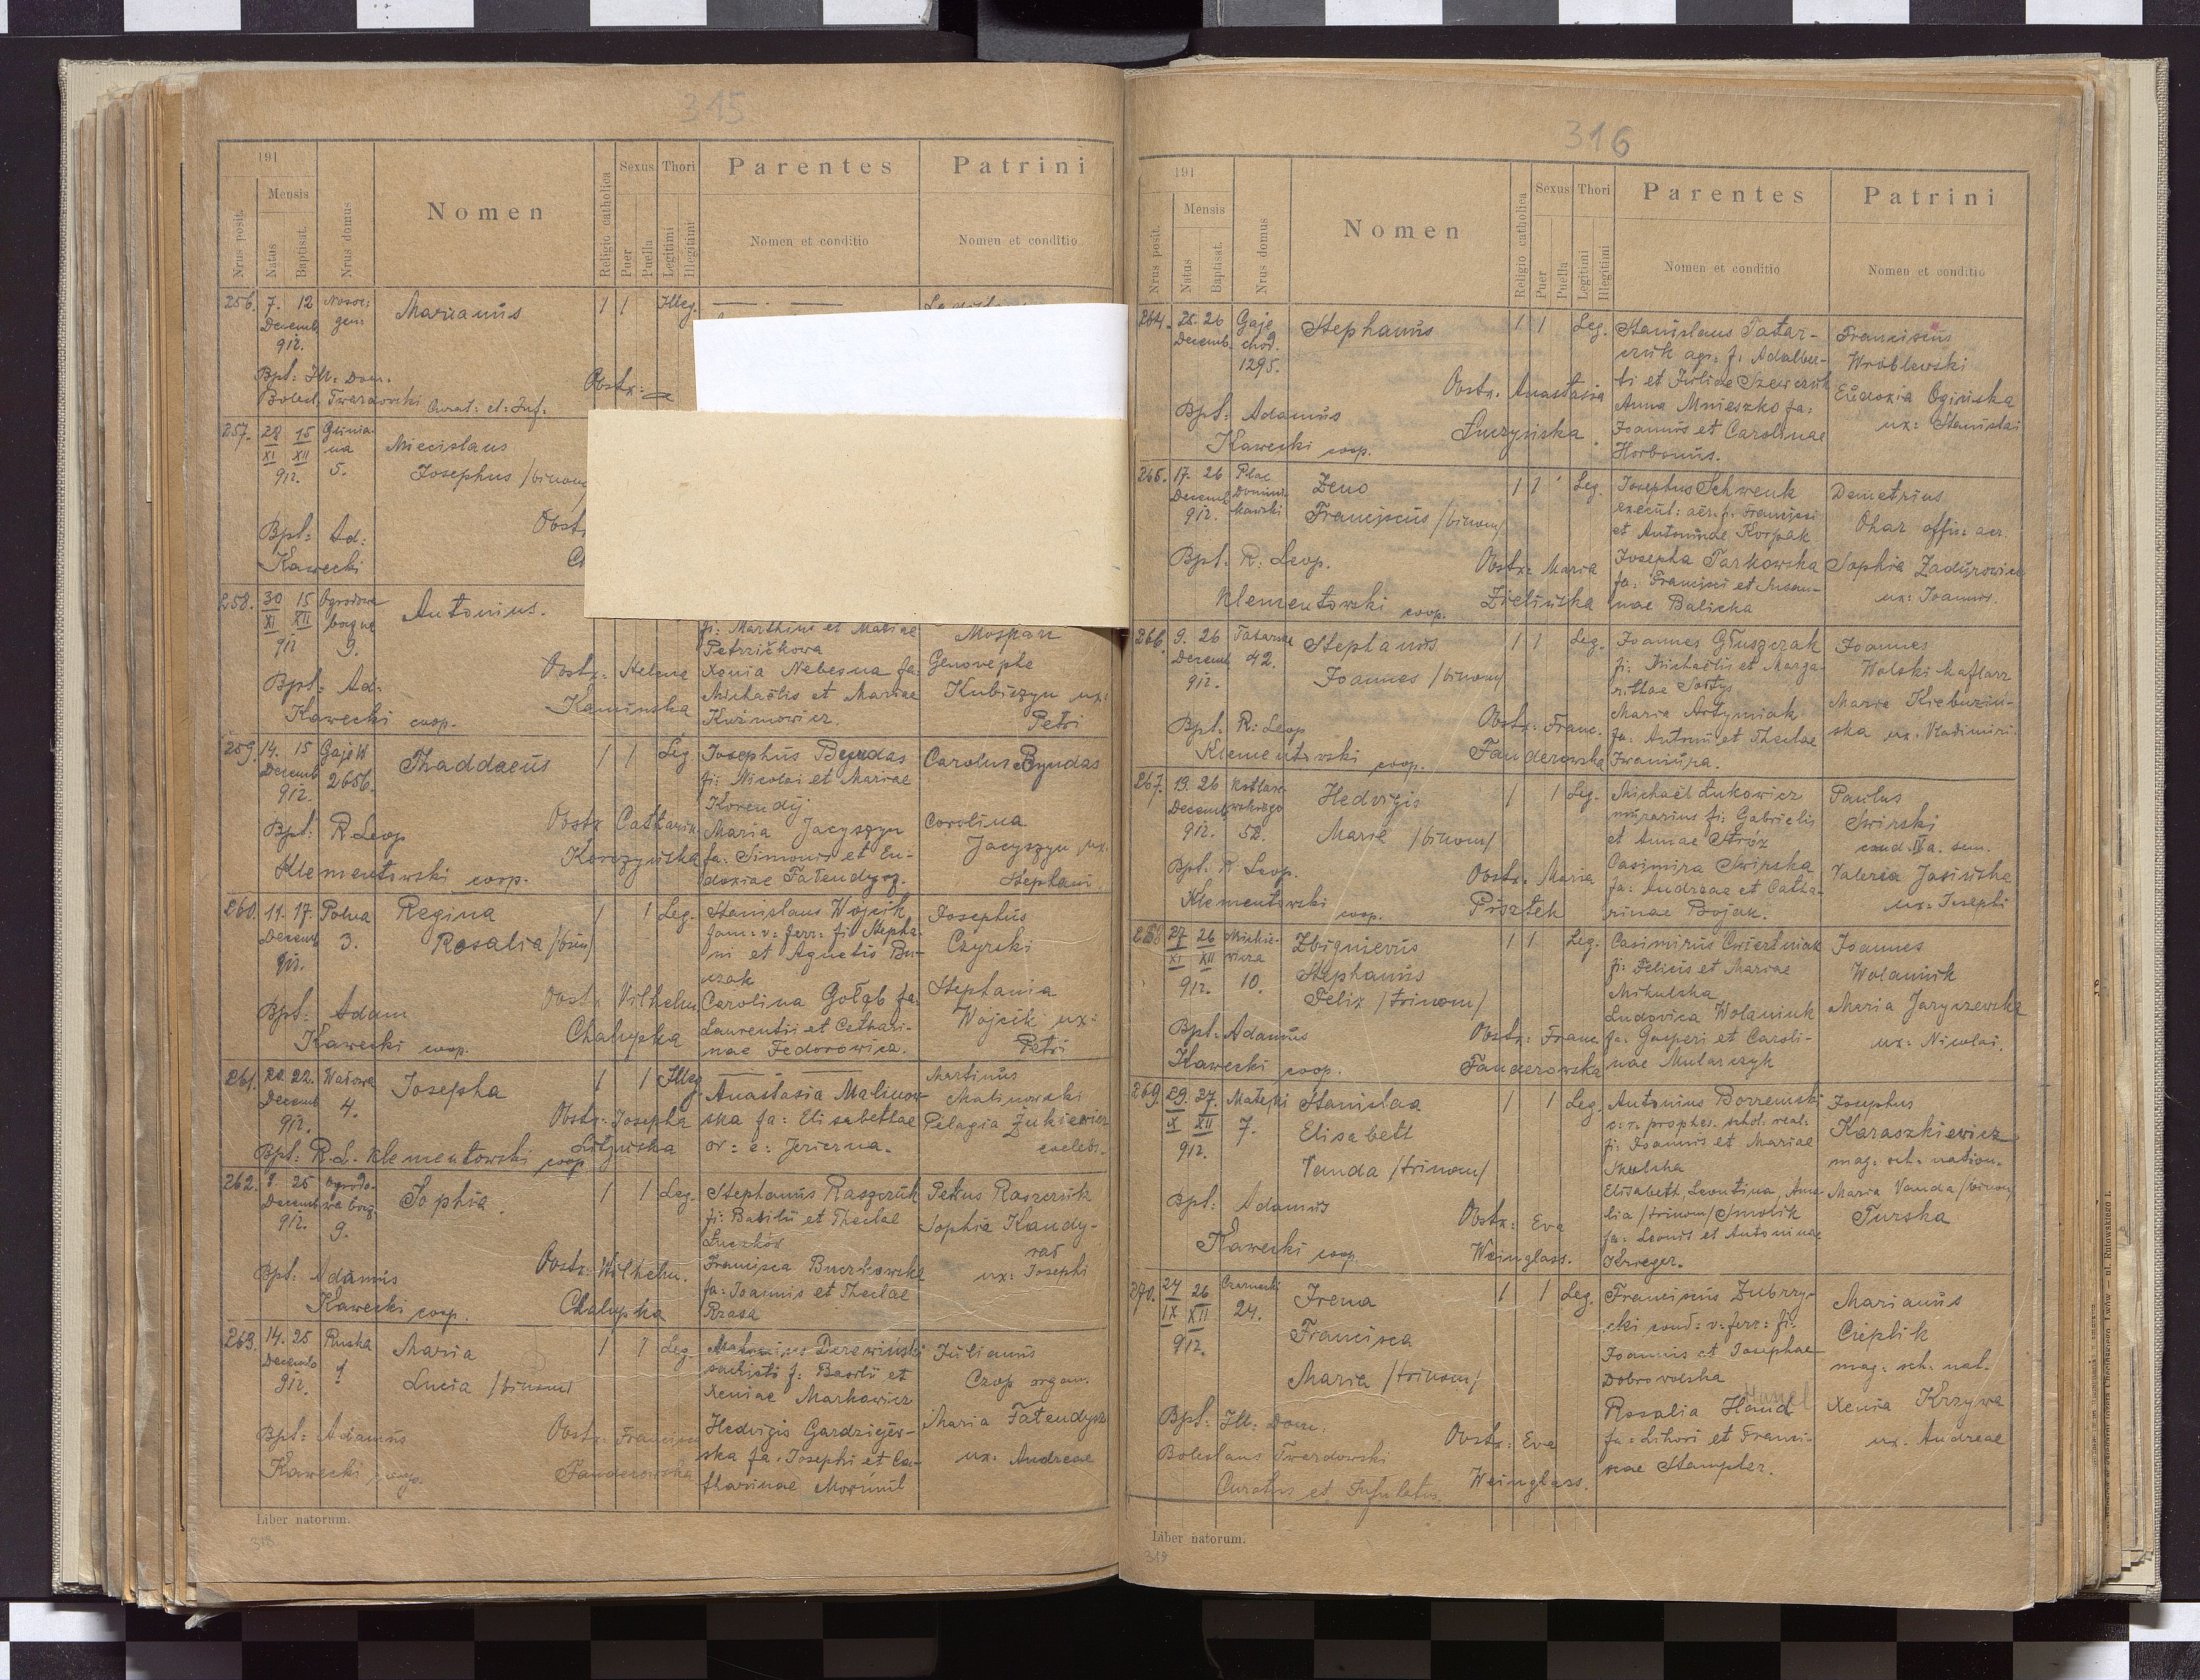 315
191
Mensis
Nrus posit.
Natus
Baptisat.
Nrus domus
Nomen
Religio catholica
Sexus
Puer
Puella
Thori
Legitimi
Illegitimi
Parentes
Nomen et conditio
Patrini
Nomen et conditio
256. 7. 12 Marianus 1 1 Illeg.
Decemb.
912.
Bpt: Ill: Dom. Obstx:
Bolesl. Twardowski Curat: et: Inf.
257. 28 15 Miecislaus
XI XII 5. Josephus /binom/
912.
Bpt: Ad:
Kawecki
258. 30 15 Ogrodowa Antonius.
XI XII boczna
912 9.
fi: Marthini et Mariae
Petrzičkowa
Xenia Nebesna fa:
Michaëlis et Mariae
Kuźmowicz.
Mospan
Genovepha
Kubiszyn ux:
Petri
Bpt: Ad: Obstx: Helena
Kawecki coop. Kaminska
259. 14. 15 Thaddaeus 1 1 Leg
Decemb 2656.
912.
Josephus Byndas
fi: Nicolai et Mariae
Korendij
Maria Jacyszyn
fa: Simonis et Eu-
doxiae Fatendysz.
Carolus Byndas
Carolina
Jacyszyn ux.
Stephani
Bpt: R. Leop Obstx
Klementowski coop. Korczyńska
260. 11. 17. Polna Regina 1 1 Leg.
Decemb 3. Rosalia /bin/
912.
Stanislaus Wojcik
fam: v: ferr: fi: Stepha-
ni et Agnetis Bu-
czak
Carolina Gołąb fa:
Laurentii et Cathari-
nae Fedorowicz.
Josephus
Czyrski
Stephania
Wojcik ux:
Petri
Bpt: Adam Obstx: Vilhelm
Kawecki coop. Chalupka
261. 20. 22. Wałowa Josepha 1 1 Illeg
Decemb 4.
912.
Anastasia Malinow-
ska fa: Elisabethae
or: e: Jezierna.
Martinus
Malinowski
Pelagia Żukiewicz
caelebs.
Obstx: Josepha
Bpt: R. L. Klementowski coop
262. 9. 25 Ogrodo- Sophia. 1 1 Leg.
Decemb wa bocz
912. 9.
Stephanus Raszczuk
fi: Basilii et Theclae
Łuczków
Francisca Buczkowska
fa: Joannis et Theclae
Rzasa
Petrus Raszczuk
Sophia Kandy-
rać
ux: Josephi
Bpt: Adamus Obstx: Wilhelm.
Kawecki coop. Chalupka
263. 14. 25 Ruska Maria 1 1 Leg
Decemb 1 Lucia /binom/
912.
Derewiński
f: Basilii et
Xeniae Markowicz
Hedvigis Gardziejew-
ska fa. Josephi et Ca-
tharinae
Julianus
Czop organ.
Maria Fatendysz
ux: Andreae
Bpt: Adamus Obstx: Francisca
Kawecki coop. Fanderowska
Liber natorum.
318
316
191
Mensis
Nrus posit.
Natus
Baptisat.
Nrus domus
Nomen
Religio catholica
Sexus
Puer
Puella
Thori
Legitimi
Illegitimi
Parentes
Nomen et conditio
Patrini
Nomen et conditio
264. 25. 26 Gaje Stephanus 1 1 Leg.
Decemb. chod.
1295.
Stanislaus Tatar-
czuk agr: f: Adalber-
ti et Juliae Szewczuk
Anna Mnieszko fa:
Joannis et Carolinae
Horbonis.
Franciscus
Wróblewski
Eudoxia Oginska
ux: Stanislai
Obstx. Anastasia
Bpt: Adamus Luczynska.
Kawecki coop.
265. 17. 26 Plac Zeno 1 1 Leg.
Decemb Domini- Franciscus /binom/
912. kański
Josephus Schwenk
execut: aër: fi. Francisci
et Antoninae Korpak
Josepha Tarkowska
fa: Francisci et Susan-
nae Balicka
Demetrius
Ohar offic: aer.
Sophia Zadurowicz
ux: Joannis.
Bpt: R: Leop. Obstx: Maria
Klementowski coop. Zielińska
266. 9. 26 Tatarska Stephanus 1 1 Leg.
Decemb 42. Joannes /binom/
912.
Joannes Głuszczak
fi: Michaëlis et Marga-
rithae Sołtys
Maria Artymiak
fa: Antonii et Theclae
Iwaniura.
Joannes
Wolski
Maria Kiebuzin-
ska ux. Vladimiri.
Bpt: R: Leop Obstx: Franc.
Klementowski coop. Fanderowska
267. 19. 26 Hedvigis 1 1 Leg.
Decemb Maria /binom/
912. 52.
Michaël Łukowicz
murarius fi: Gabrielis
et Annae Stróż
Casimira Swirska
fa: Andreae et Catha-
rinae Bojak.
Paulus
Swirski
cand. IV a. sem.
Valeria Jasińska
ux: Josephi
Bpt: R Leop. Obstx. Maria
Klementowski coop. Pisztek
268 27 26 Mickie- Zbignievus 1 1 Leg.
XI XII wicza Stephanus
912. 10. Felix /trinom/
Casimirus Cwiertniak
fi: Felicis et Mariae
Mikulska
Ludovica Wolaniuk
fa: Gasperi et Caroli-
nae Mularczyk
Joannes
Wolaniuk
Maria Jaryszewska
ux: Nicolai.
Bpt: Adamus Obstx: Franc
Kawecki coop. Fanderowska
269. 29. 27 Matejki Stanislaa 1 1 Leg.
X XII 7. Elisabeth
912. Vanda /trinom/
Antonius Borzemski
c: r: prophes. schol. real:
fi: Joannis et Mariae
Skulska
Elisabeth, Leontina, Ama-
lia /trinom/ Smolik
fa: Leonis et Antoninae
Krieger.
Josephus
Karaszkiewicz
mag. sch. nation.
Maria Vanda /binom/
Turska
Bpt: Adamus Obstx: Eva
Kawecki coop Weinglass.
270. 24 26 Irena 1 1 Leg.
IX XII 24. Francisca
912. Maria /trinom/
Franciscus Zubrzy-
cki cond: v: ferr: fi:
Joannis et Josephae
Dobrovolska
Rosalia Hand
fa: Lihori et Franci-
scae Stampler.
Marianus
Cieplik
mag. sch. nat.
Xenia Krzywa
ux. Andreae
Bpt: Ill: Dom. Obstx: Eva
Boleslaus Twardowski Weinglass.
Curatus et Infulatus.
Liber natorum.
319